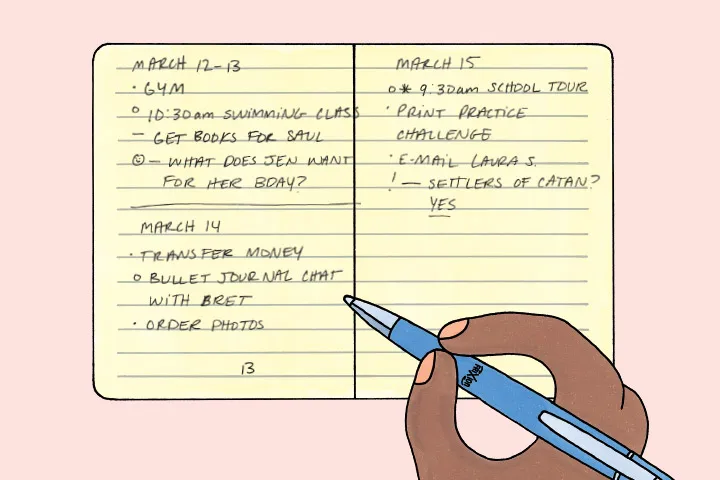 MARCH 12-13
· GYM
○ 10:30am SWIMMING CLASS
— GET BOOKS FOR SAUL
☺ — WHAT DOES JEN WANT
FOR HER BDAY?
MARCH 14
· TRANSFER MONEY
○ BULLET JOURNAL CHAT
WITH BRET
· ORDER PHOTOS
13
MARCH 15
○* 9:30am SCHOOL TOUR
· PRINT PRACTICE
CHALLENGE
· E-MAIL LAURA S.
! — SETTLERS OF CATAN?
YES